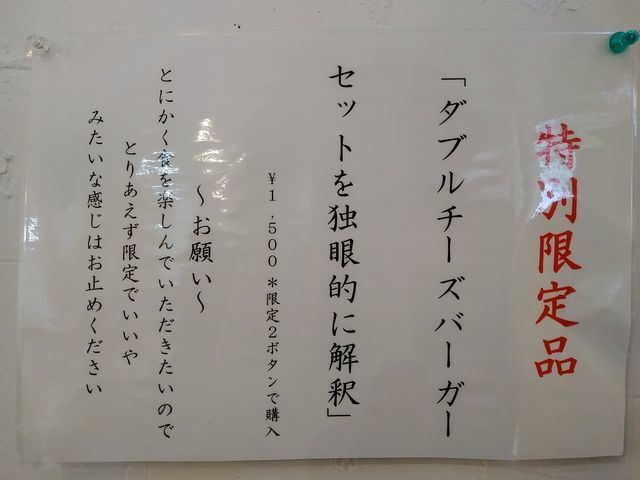 特別限定品
「ダブルチーズバーガー
セットを独眼的に解釈」
¥1,500 *限定2ボタンで購入
～お願い～
とにかく食を楽しんでいただきたいので
とりあえず限定でいいや
みたいな感じはお止めください